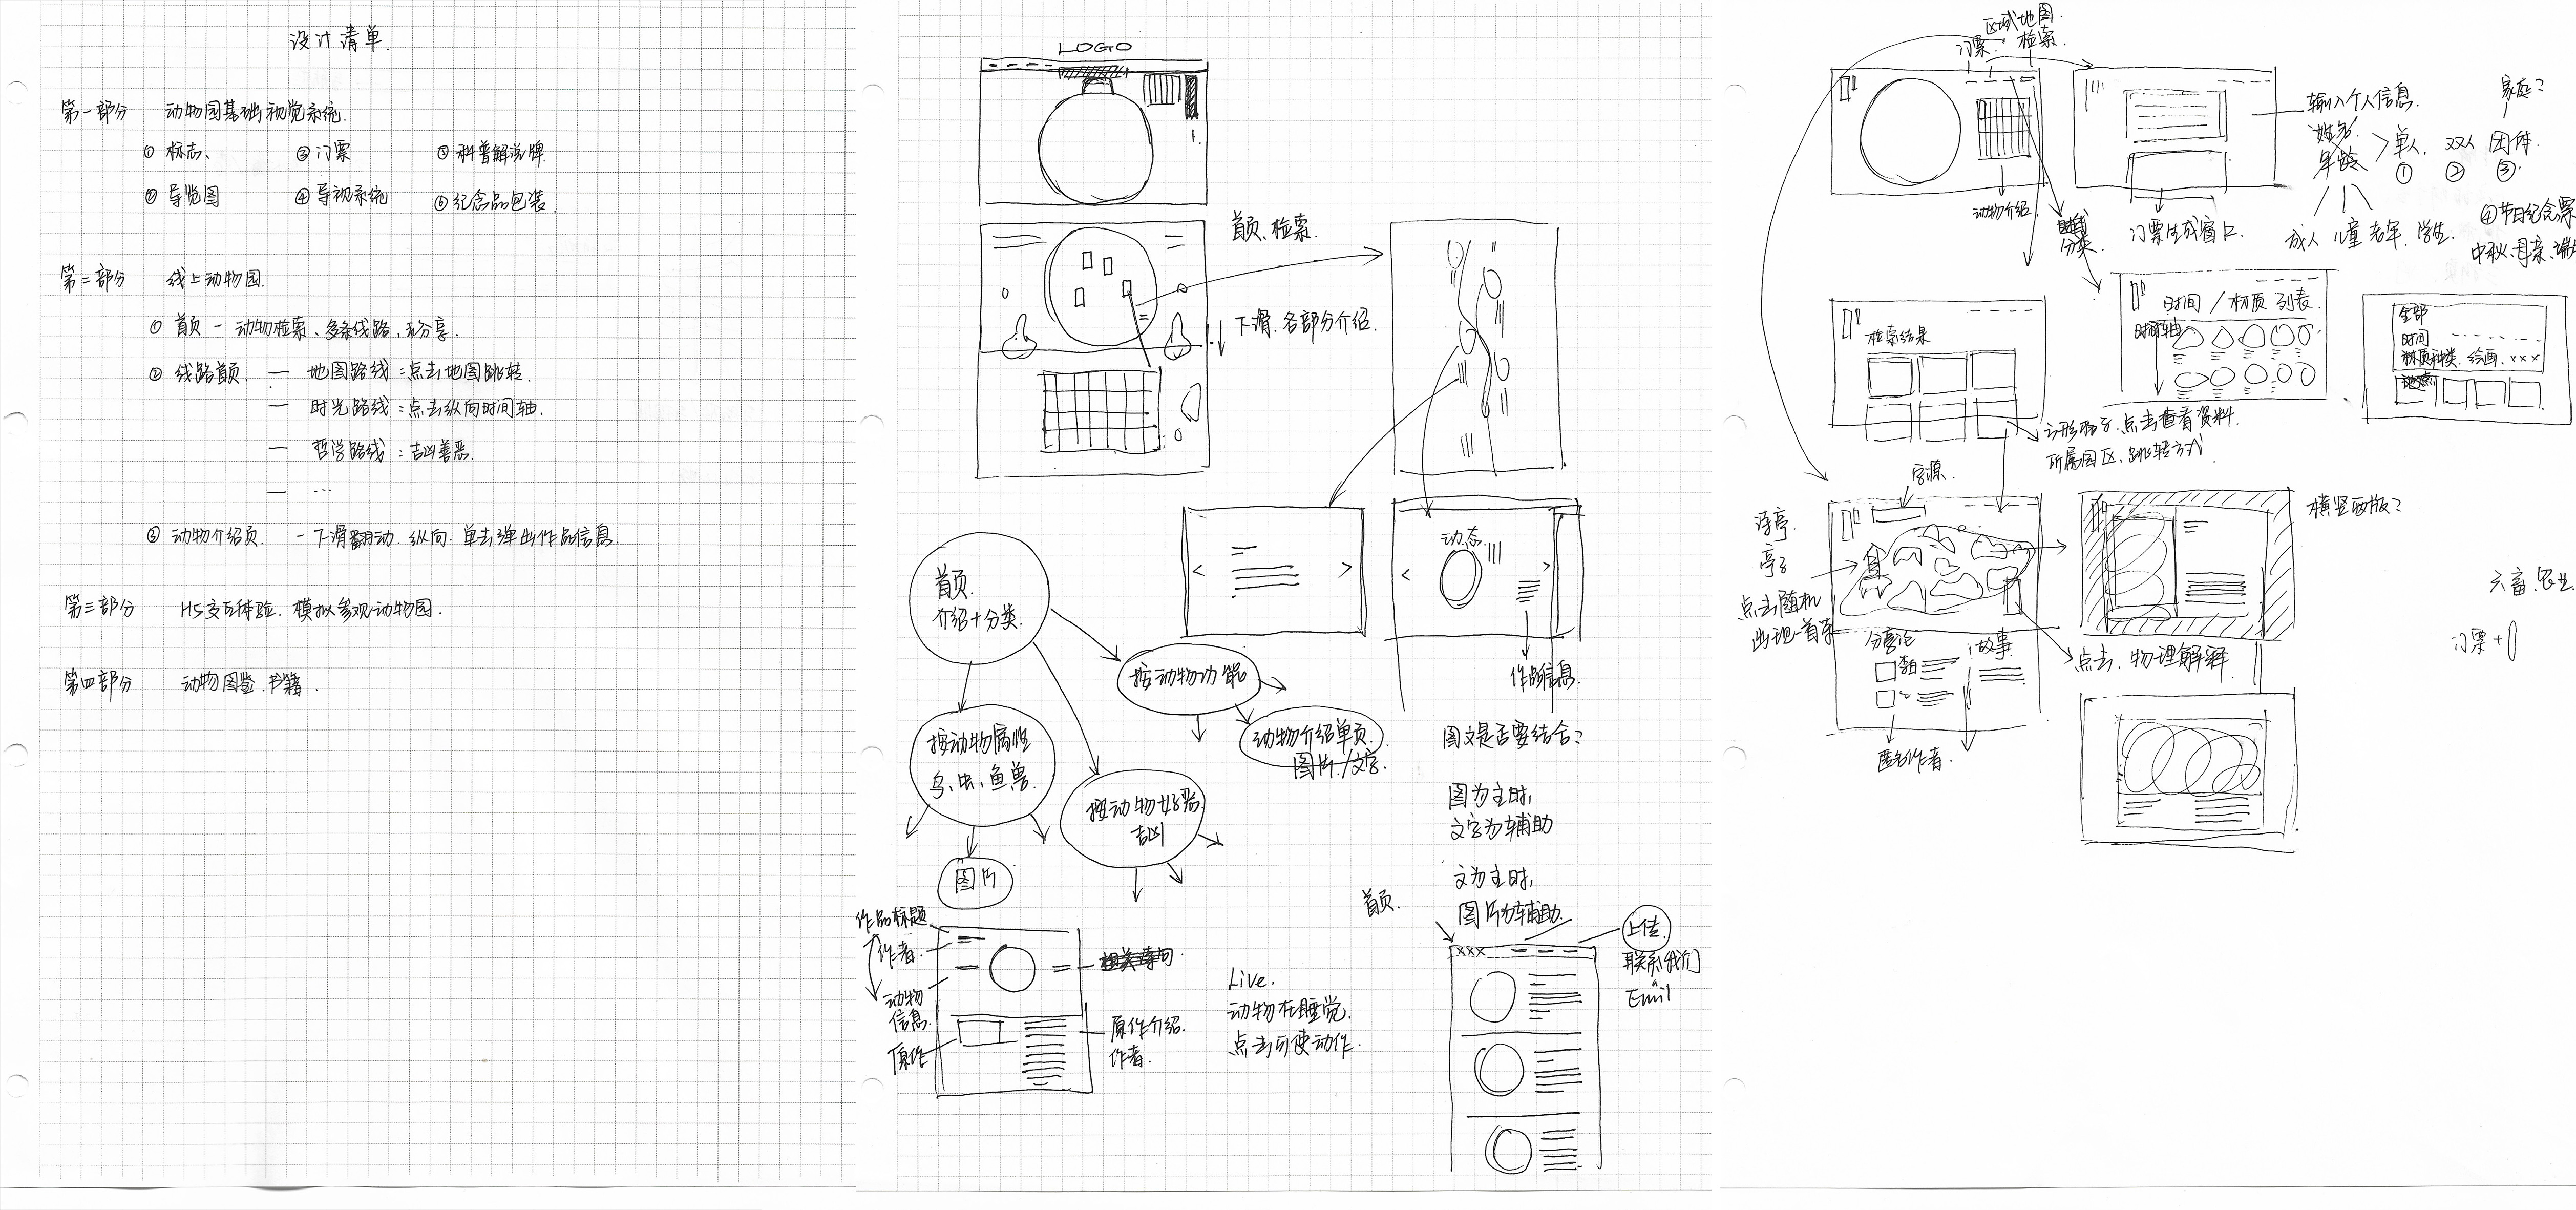 设计清单.
第一部分 动物园基础视觉系统.
① 标志、 ③ 门票 ⑤ 科普解说牌.
② 导览图 ④ 导视系统 ⑥ 纪念品包装.
第二部分 线上动物园.
① 首页 — 动物检索、多条线路、云分享.
② 线路首页. — 地图路线：点击地图跳转.
— 时光路线：点击纵向时间轴.
— 哲学路线：吉凶善恶.
— …
③ 动物介绍页. — 下滑翻动. 纵向. 单击弹出作品信息.
第三部分 H5交互体验. 模拟参观动物园.
第四部分 动物图鉴.书籍.
LOGO
首页、检索.
下滑.各部分介绍.
动态.
作品信息.
首页.
介绍+分类.
按动物功能
动物介绍单页.
图片./文字.
按动物属性
鸟、虫、鱼兽.
按动物好恶
吉凶
图片
图文是否要结合？
图为主时，
文字为辅助
文为主时，
图片为辅助.
作品标题
作者.
动物
信息.
原作
原作介绍.
作者.
Live.
动物在睡觉.
点击可使动作.
首页.
xxx
上传.
联系我们
Emil
区域地图.
门票. 检索.
动物介绍.
分类.
门票生成窗口.
输入个人信息. 家庭？
年龄 > 单人. 双人 团体.
① ② ③.
成人 儿童 老年. 学生.
④节日纪念票
中秋、母亲、端
检索结果
时间 / 材质 列表.
时间轴
全部
时间
材质种类. 绘画. xxx
点击查看资料.
所属园区、跳转方式
字源.
亭子
点击随机
出现一首
故事
匿名作者.
点击.物理解释.
横竖两版？
六畜.
门票+